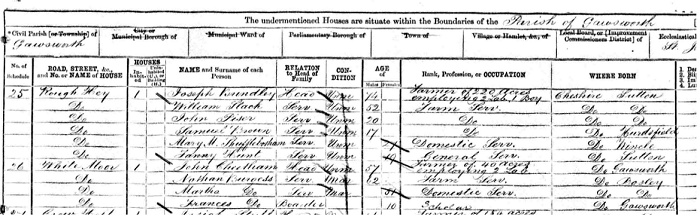 The undermentioned Houses are situate within the Boundaries of the Parish of Gawsworth
*Civil Parish [or Township] of Gawsworth
City or Municipal Borough of
Municipal Ward of
Parliamentary Borough of
Town of
Village or Hamlet, &c., of
Local Board, or [Improvement Commissioners District] of
Ecclesiastical
No. of Schedule
ROAD, STREET, &c., and No. or NAME of HOUSE
HOUSES
NAME and Surname of each Person
RELATION to Head of Family
CONDITION
AGE of
Rank, Profession, or OCCUPATION
WHERE BORN
25 Rough Hey 1 Joseph Brindley Head Unm 74 Farmer of 220 acres employing 2 Lab 1 Boy Cheshire Sutton
Do William Slack Serv Unm 52 Farm Serv Do Do
Do John Serv Unm 20 Do Do Do
Do Samuel Brown Serv Unm 17 Do Do
Do Mary M. Shufflebotham Serv Unm Domestic Serv Do Wincle
Do Fanny Hunt Serv Unm 19 General Serv Do Sutton
26 1 John Head 57 Farmer of 40 acres employing 2 Lab Do Gawsworth
Do Nathan Serv Farm Serv Do Bosley
Do Martha Do Serv Domestic Serv Do Do
Do Frances Do Boarder 10 Scholar Do Gawsworth